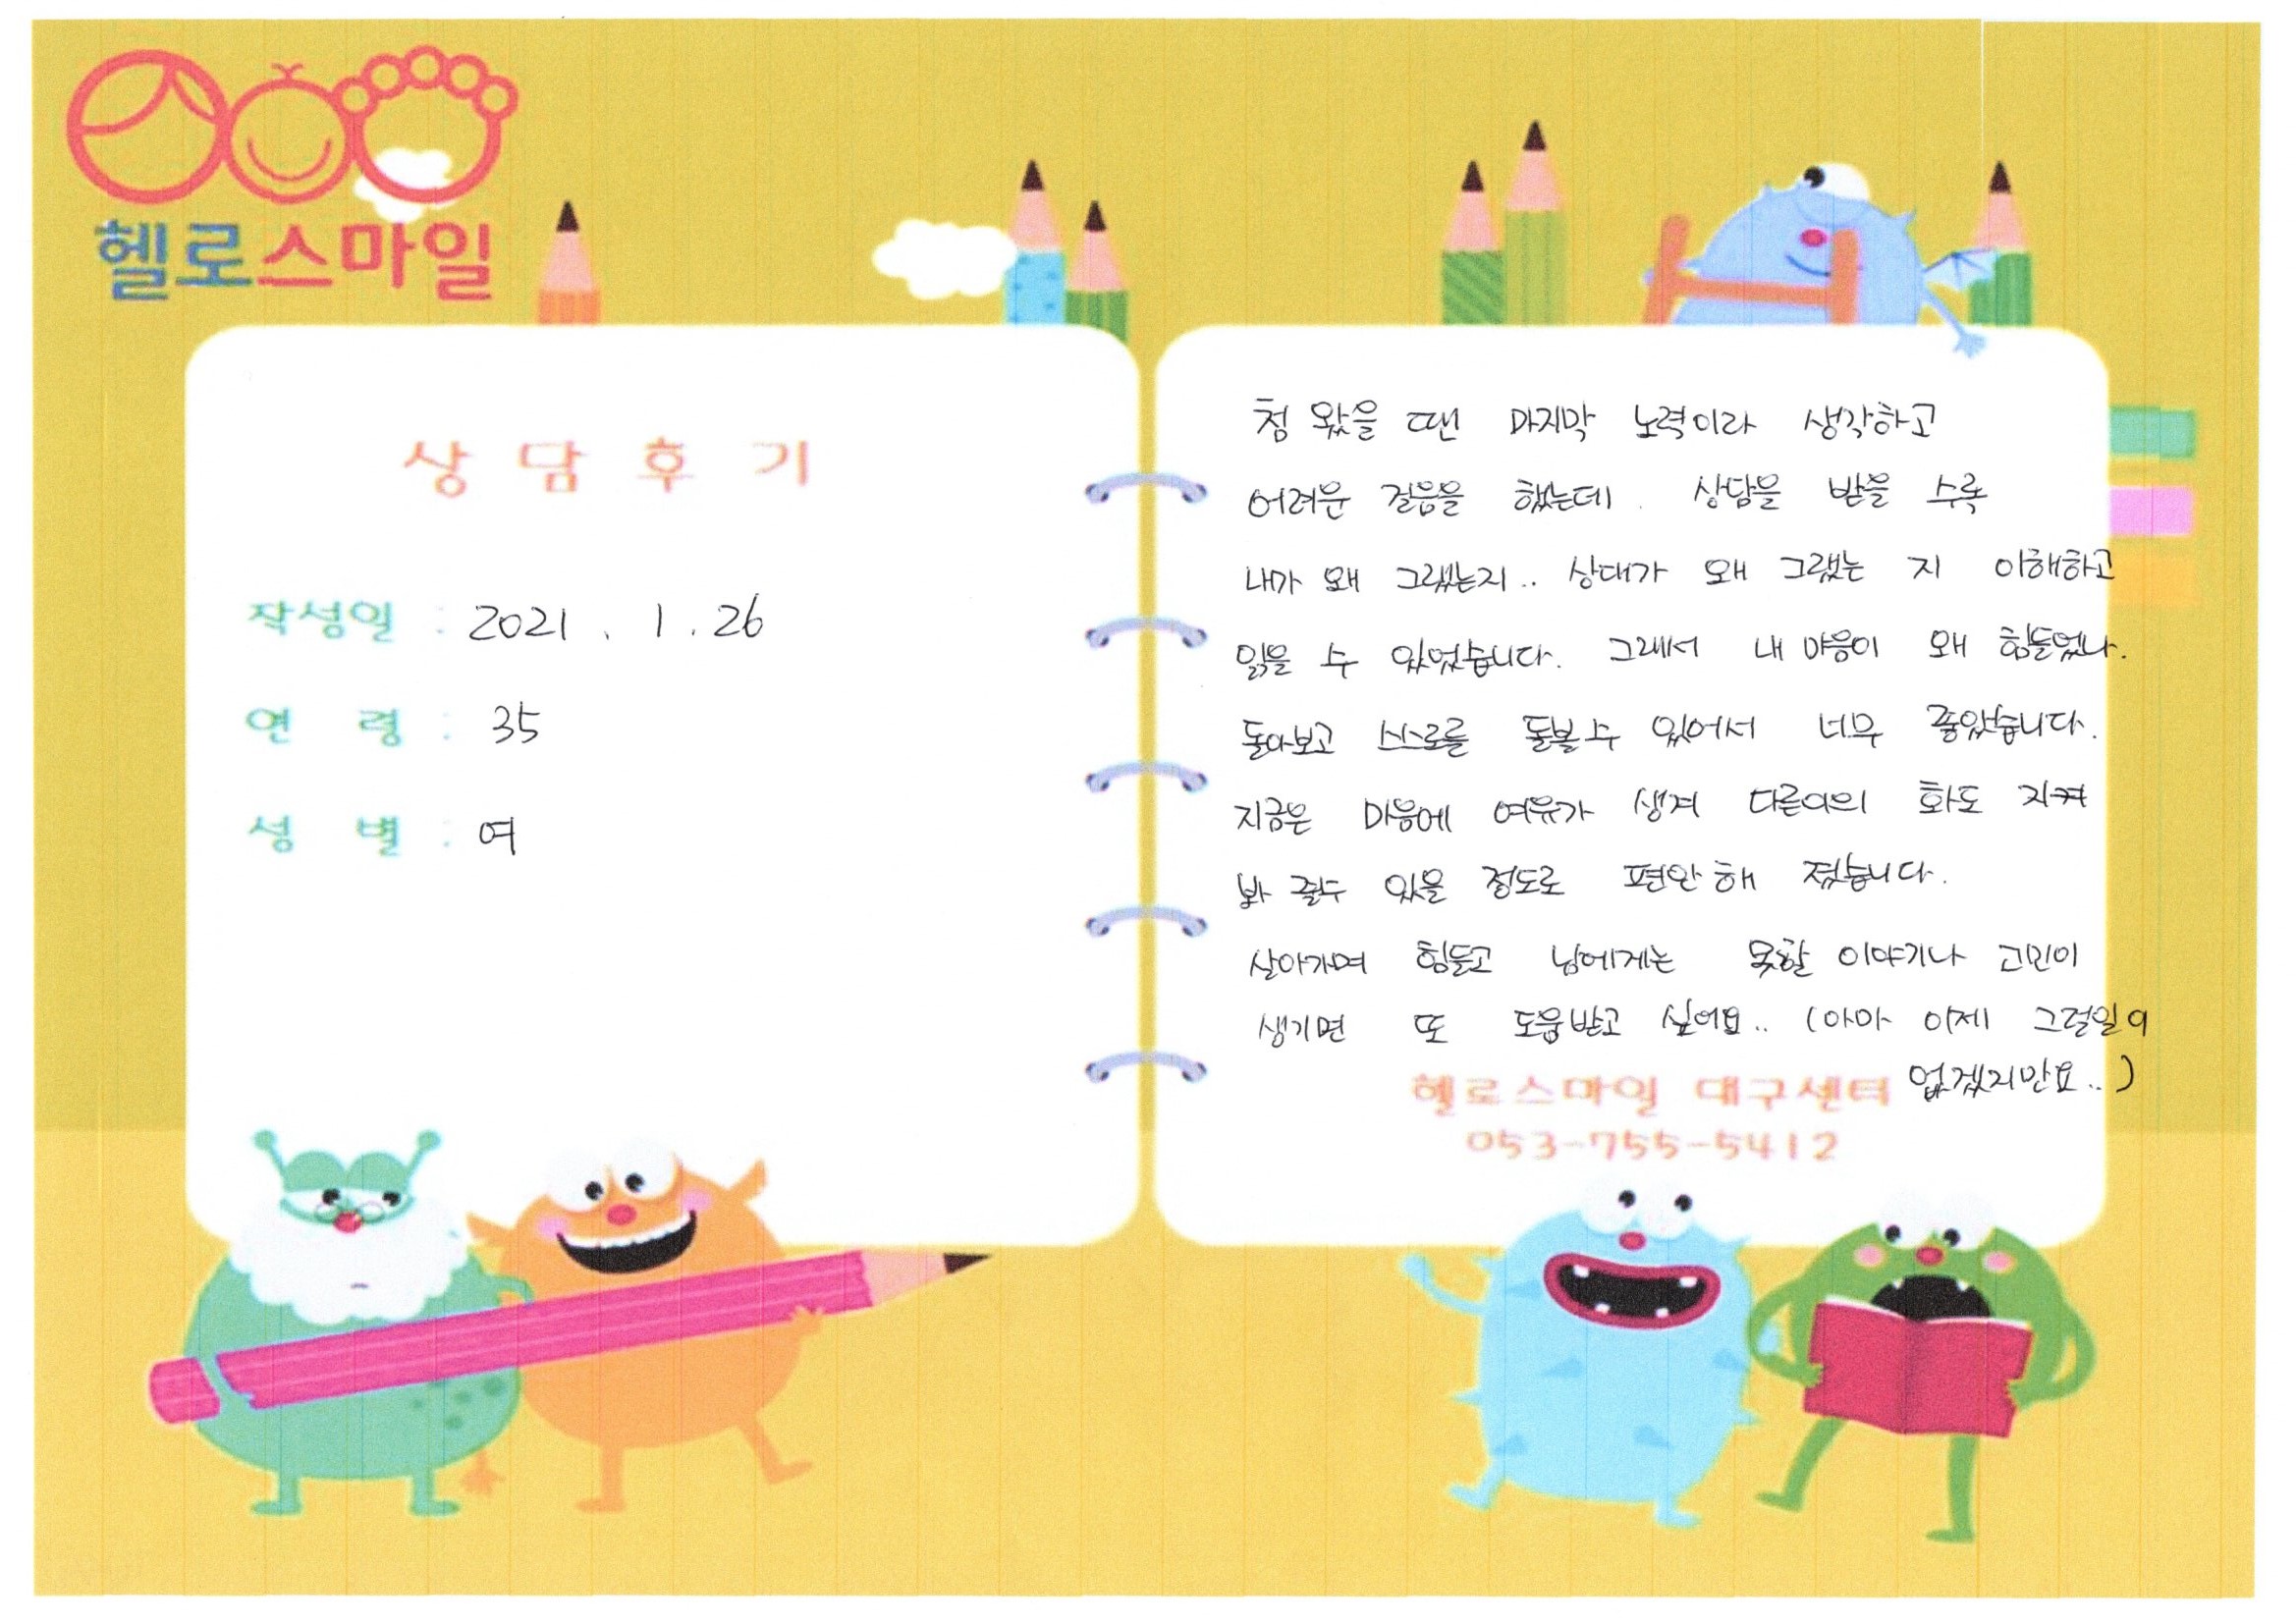 헬로스마일
상 담 후 기
작성일 : 2021 . 1 . 26
연 령 : 35
성 별 : 여
첨 왔을 땐 마지막 노력이라 생각하고
어려운 걸음을 했는데. 상담을 받을 수록
내가 왜 그랬는지.. 상대가 왜 그랬는 지 이해하고
읽을 수 있었습니다. 그래서 내 마음이 왜 힘들었나.
돌아보고 스스로를 돌볼 수 있어서 너무 좋았습니다.
지금은 마음에 여유가 생겨 다른이의 화도 지켜
봐 줄수 있을 정도로 편안해 졌습니다.
살아가며 힘들고 남에게는 못할 이야기나 고민이
생기면 또 도움받고 싶어요.. (아마 이제 그럴일이
없겠지만요..)
헬로스마일 대구센터
053-755-5412